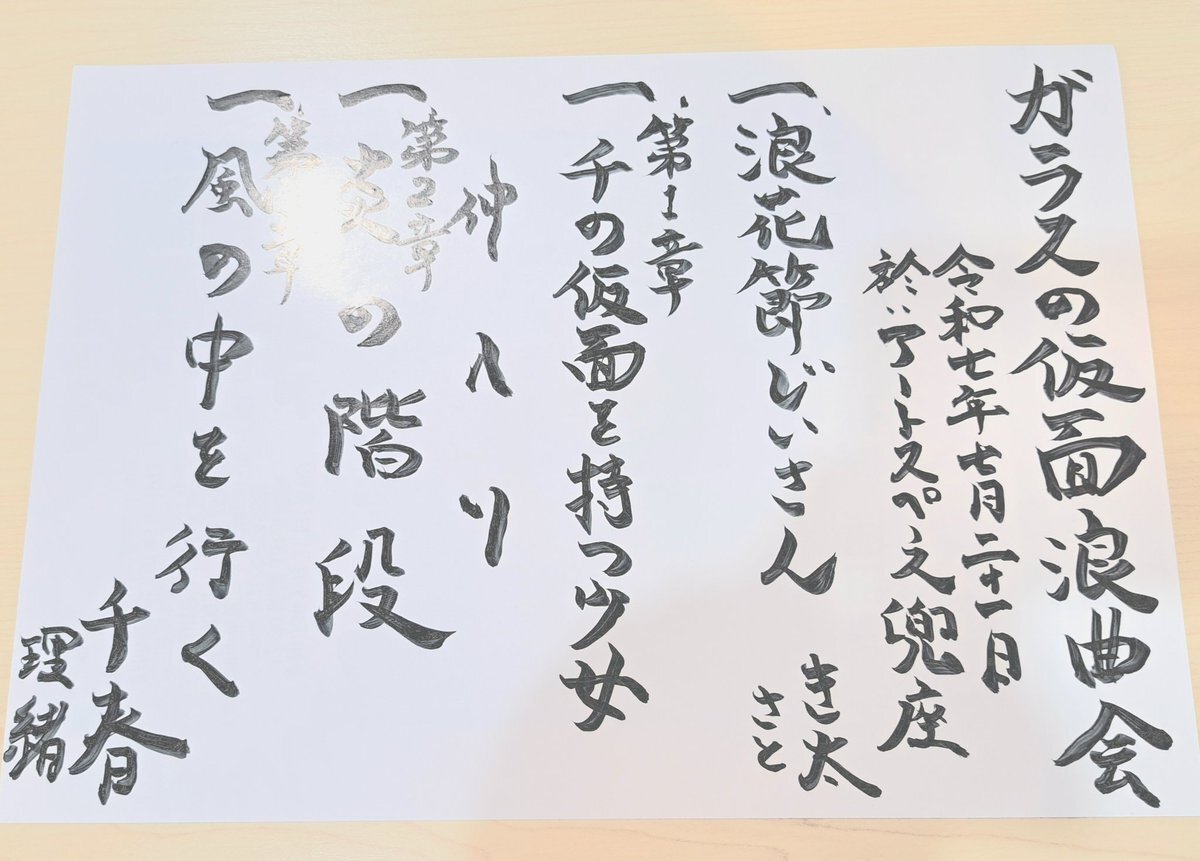 ガラスの仮面浪曲会
令和七年七月二十一日
於:アートスペース兜座
一、浪花節じいさん
き太
さと
第1章
一、千の仮面を持つ少女
仲入り
第2章
一、炎の階段
第 章
一、風の中を行く
千春
理緒